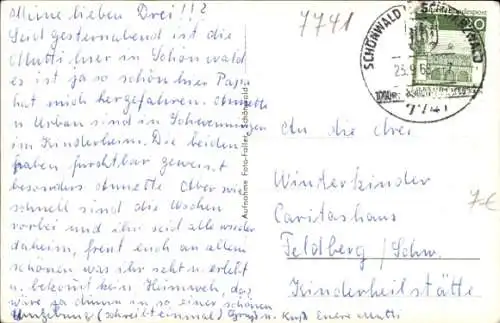 Meine lieben Drei!!!
Seid gestern abend ist die
Mutti hier in Schönwald
es ist ja so schön hier Papa
hat mich hergefahren.
u Urban sind in Schwenningen
im Kinderheim. Die beiden
haben furchtbar geweint
besonders Aber wie
schnell sind die Wochen
vorbei und ihr seid alle wieder
daheim, freut euch an allem
schönen was ihr seht u. erlebt
u. bekommt kein Heimweh, das
wäre ja dumm in so einer schönen
Umgebung (schreibt einmal) Gruß u. Kuß Eure Mutti
Aufnahme Foto-Faller, Schönwald
7741
SCHÖNWALD SCHWARZWALD
20
7741
An die drei
Winterkinder
Caritashaus
Feldberg/Schw.
Kinderheilstätte
7€